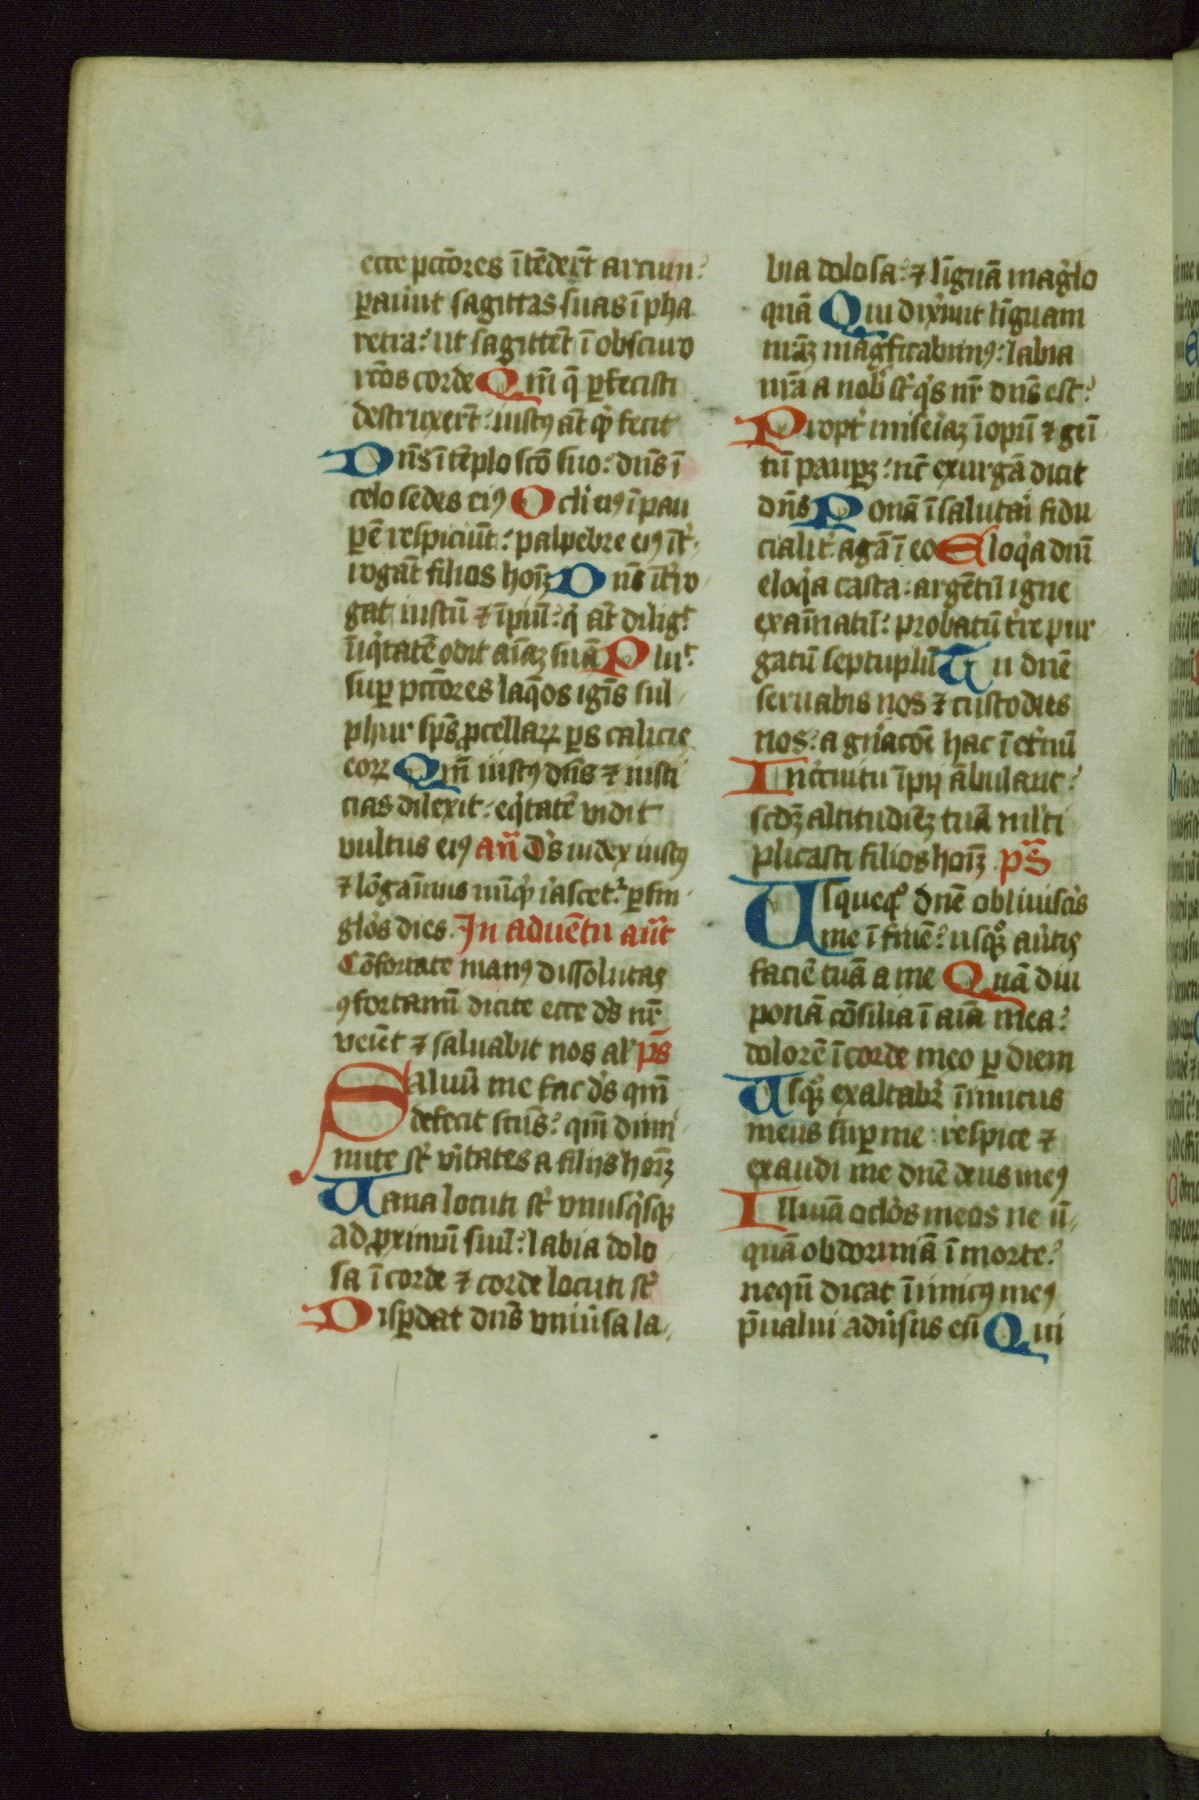 ecce pctōres ītēdert̄ arcum:
ꝑauͥnt sagittas suas ī pha
retra: ut sagittēt ī obscuro
rc̄os corde Qm̄ q̄ ꝑfecisti
destruxert̄: iustꝰ at̄ qͥd fecit
Dn̄s ī tēplo sc̄o suo: dn̄s ī
celo sedes eiꝰ Ocli eiꝰ ī pau
ꝑē respiciūt: palpebre eiꝰ īt͛
rogāt filios hoīꝫ Dn̄s īt͛ro
gat iustū ⁊ īpiū: qͥ at̄ diligͭ
īiqͥtatē odit aīaꝫ suā Pluͥͭ
suꝑ pctōres laq̄os ignīs sul
phur sp̄s ꝓcellaꝝ ꝑs calicis
eoꝝ Qm̄ iustꝰ dn̄s ⁊ iusti
cias dilexit: eqͥtatē vidit
vultus eiꝰ an̄ ds̄ iudex iustꝰ
⁊ lōgaīmis nūqͥd iͣascet͛ ꝑ sin
glōs dies. In aduētu an̄t
Cōfortate manꝰ dissolutas
ꝯfortamī dicite ecce ds̄ nr̄
veīet ⁊ saluabit nos al' ps̄
Saluū me fac ds̄ qm̄
defecit scūs: qm̄ dimi
nute st̄ v͛itates a filijs hoīꝫ
Uana locuti st̄ vnusqͥsqꝫ
ad ꝓximū suū: labia dolo
sa ī corde ⁊ corde locuti st̄
Disꝑdat dn̄s vniu͛sa la
bia dolosa: ⁊ līguā magͥlo
quā Qui dixͥnt līguam
nr̄aꝫ magͥficabimꝰ: labia
nr̄a a nob̄ st̄ qͥs nr̄ dn̄s est:
Propt͛ miseiͣaꝫ īopū ⁊ gēi
tū pauꝑꝫ: nc̄ exurgā dicit
dn̄s Ponā ī salutaͥ fidu
cialit͛ agā ī eo Eloqͥa dnī
eloqͥa casta: argētū igne
examīatū: probatū t͛re pur
gatū septuplū Tu dnē
seruabis nos ⁊ custodies
nos: a gn̄acōe hac ī et͛nū
In circuitu īpij ābulant:
scd̄ꝫ altitudinēꝫ tuā mlͥti
plicasti filios hoīꝫ ps̄
Usquequͦ dnē obliuiscͥs
me ī finē: usqꝫ quͦ aūtis
faciē tuā a me Quā diu
ponā cōsilia ī aīa mea:
dolorē ī corde meo ꝑ diem
Usqꝫ quͦ exaltabͥ īimicus
meus suꝑ me: respice ⁊
exaudi me dnē deus meꝰ
Illuīa oclōs meos ne ū
quā obdormiā ī morte:
neqn̄ dicat īimicꝰ meꝰ
p̄ualui adu͛sus eū Qui